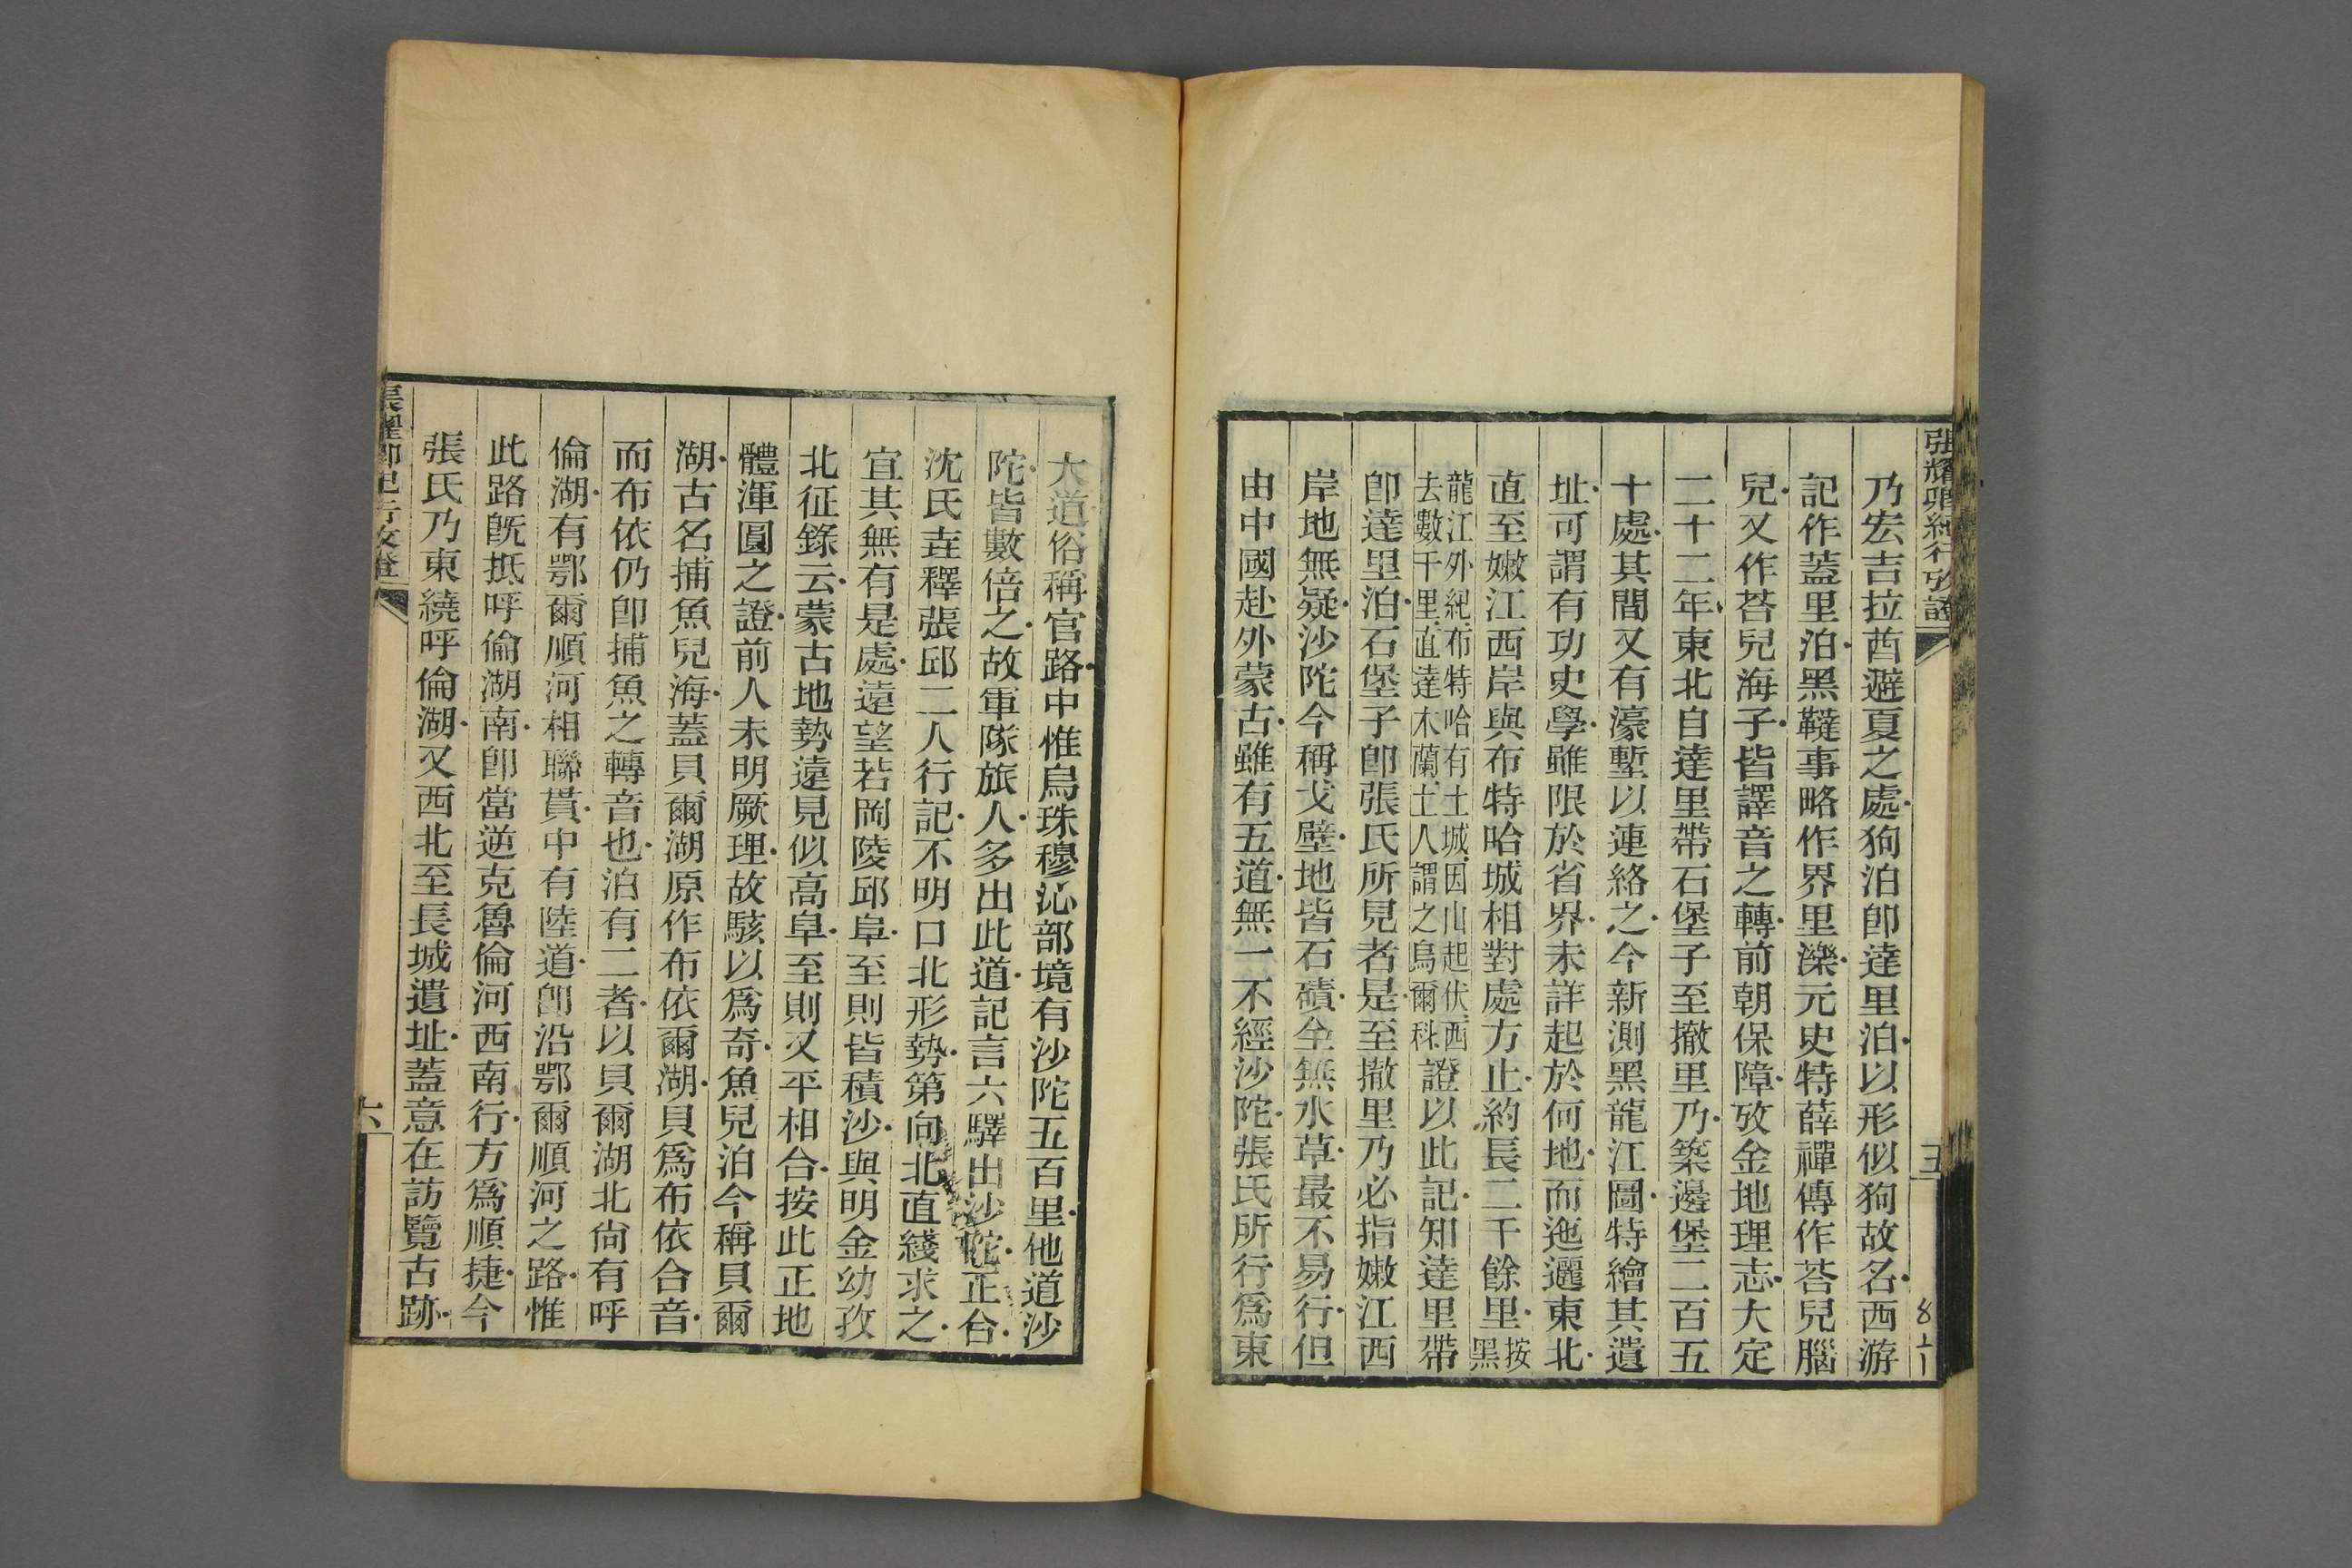 張耀卿紀行攷證
五
乃宏吉拉酋避夏之處狗泊卽達里泊以形似狗故名西游
記作蓋里泊黑韃事略作界里濼元史特薛禪傳作荅兒腦
兒又作荅兒海子皆譯音之轉前朝保障攷金地理志大定
二十二年東北自達里帶石堡子至撤里乃築邊堡二百五
十處其閒又有濠塹以連絡之今新測黑龍江圖特繪其遺
址可謂有功史學雖限於省界未詳起於何地而迤邐東北
直至嫩江西岸與布特哈城相對處方止約長二千餘里按黑
龍江外紀布特哈有土城因山起伏西去數千里直達木蘭土人謂之烏爾科證以此記知達里帶
卽達里泊石堡子卽張氏所見者是至撤里乃必指嫩江西
岸地無疑沙陀今稱戈壁地皆石磧全無水草最不易行但
由中國赴外蒙古雖有五道無一不經沙陀張氏所行爲東
大道俗稱官路中惟烏珠穆沁部境有沙陀五百里他道沙
陀皆數倍之故軍隊旅人多出此道記言六驛出沙陀正合
沈氏垚釋張邱二人行記不明口北形勢第向北直綫求之
宜其無有是處遠望若岡陵邱阜至則皆積沙與明金幼孜
北征錄云蒙古地勢遠見似高阜至則又平相合按此正地
體渾圓之證前人未明厥理故駭以爲奇魚兒泊今稱貝爾
湖古名捕魚兒海蓋貝爾湖原作布依爾湖貝爲布依合音
而布依仍卽捕魚之轉音也泊有二者以貝爾湖北尙有呼
倫湖有鄂爾順河相聯貫中有陸道卽沿鄂爾順河之路惟
此路旣抵呼倫湖南卽當逆克魯倫河西南行方爲順捷今
張氏乃東繞呼倫湖又西北至長城遺址蓋意在訪覽古跡
張耀卿紀行攷證
六